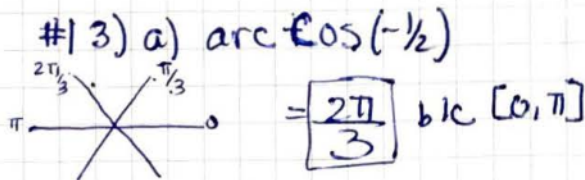 #13) a) arc cos(-1/2)
2π/3 π/3
π 0 = 2π/3 b/c [0, π]